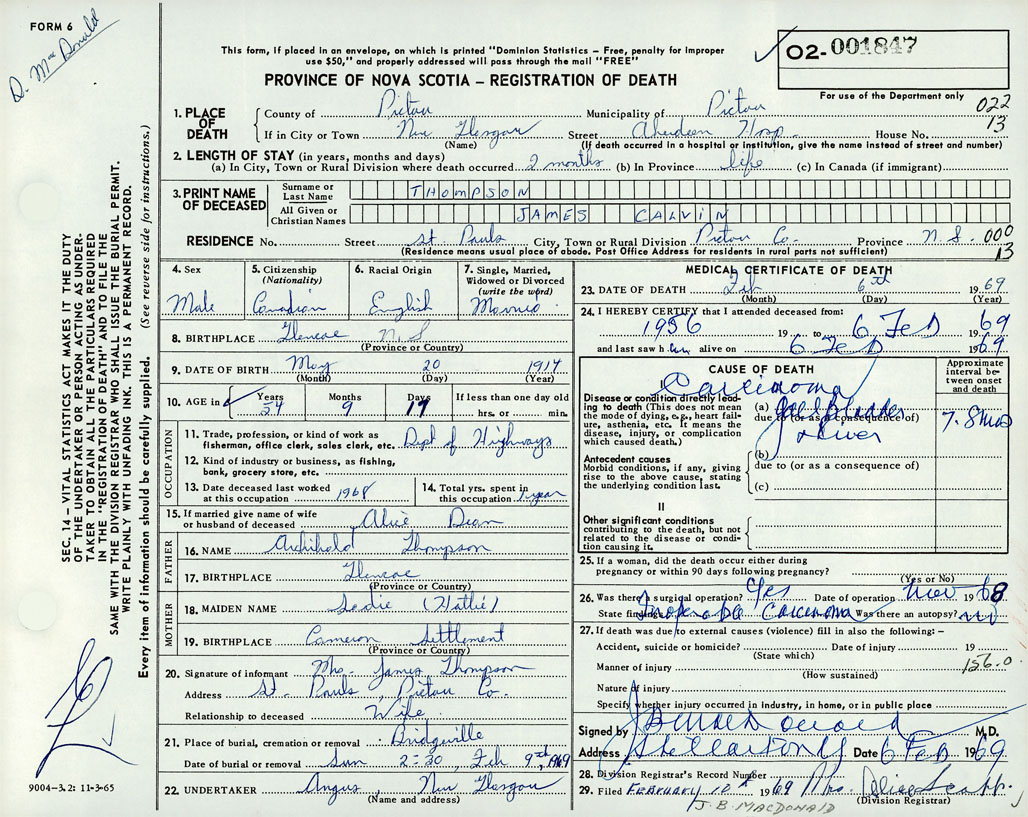 FORM 6
D. MacDonald
This form, if placed in an envelope, on which is printed "Dominion Statistics – Free, penalty for improper
use $50," and properly addressed will pass through the mail "FREE"
PROVINCE OF NOVA SCOTIA – REGISTRATION OF DEATH
02-001847
For use of the Department only
022
13
SEC. 14 – VITAL STATISTICS ACT MAKES IT THE DUTY
OF THE UNDERTAKER OR PERSON ACTING AS UNDER-
TAKER TO OBTAIN ALL THE PARTICULARS REQUIRED
IN THE "REGISTRATION OF DEATH" AND TO FILE THE
SAME WITH THE DIVISION REGISTRAR WHO SHALL ISSUE THE BURIAL PERMIT.
WRITE PLAINLY WITH UNFADING INK. THIS IS A PERMANENT RECORD.
Every item of information should be carefully supplied. (See reverse side for instructions.)
1. PLACE OF DEATH County of Pictou Municipality of Pictou
If in City or Town New Glasgow Street Aberdeen Hosp. House No.
(Name) (If death occurred in a hospital or institution, give the name instead of street and number)
2. LENGTH OF STAY (in years, months and days)
(a) In City, Town or Rural Division where death occurred 2 months (b) In Province life (c) In Canada (if immigrant)
3. PRINT NAME OF DECEASED Surname or Last Name THOMPSON
All Given or Christian Names JAMES CALVIN
RESIDENCE No. Street St. Pauls City, Town or Rural Division Pictou Co. Province N.S. 000
(Residence means usual place of abode. Post Office Address for residents in rural parts not sufficient) 13
4. Sex Male
5. Citizenship (Nationality) Canadian
6. Racial Origin English
7. Single, Married, Widowed or Divorced (write the word) Married
8. BIRTHPLACE Glencoe N.S
(Province or Country)
9. DATE OF BIRTH May 20 1914
(Month) (Day) (Year)
10. AGE in Years 54 Months 9 Days 17 If less than one day old
hrs. or min.
OCCUPATION
11. Trade, profession, or kind of work as
fisherman, office clerk, sales clerk, etc. Dept of Highways
12. Kind of industry or business, as fishing,
bank, grocery store, etc.
13. Date deceased last worked
at this occupation 1968
14. Total yrs. spent in
this occupation 1 year
15. If married give name of wife
or husband of deceased Alice Dean
FATHER
16. NAME Archibald Thompson
17. BIRTHPLACE Glencoe
(Province or Country)
MOTHER
18. MAIDEN NAME (Hattie)
19. BIRTHPLACE Cameron Settlement
(Province or Country)
20. Signature of informant Mrs. James Thompson
Address St. Pauls, Pictou Co.
Relationship to deceased Wife
21. Place of burial, cremation or removal Bridgeville
Date of burial or removal Sun 2-30, Feb 9th, 1969
22. UNDERTAKER Angus, New Glasgow
(Name and address)
9004-3.2: 11-3-65
MEDICAL CERTIFICATE OF DEATH
23. DATE OF DEATH Feb 6th 1969
(Month) (Day) (Year)
24. I HEREBY CERTIFY that I attended deceased from:
1956 19 to 6 Feb 1969
and last saw him alive on 6 Feb 1969
CAUSE OF DEATH
Approximate interval between onset and death
Carcinoma
Disease or condition directly lead-
ing to death (This does not
mean the mode of dying, e.g., heart fail-
ure, asthenia, etc. It means the
disease, injury, or complication
which caused death.)
(a) Gall Bladder
due to (or as a consequence of)
& Liver
7-8 mos
Antecedent causes
Morbid conditions, if any, giving
rise to the above cause, stating
the underlying condition last.
(b)
due to (or as a consequence of)
(c)
II
Other significant conditions
contributing to the death, but not
related to the disease or condi-
tion causing it.
25. If a woman, did the death occur either during
pregnancy or within 90 days following pregnancy?
(Yes or No)
26. Was there a surgical operation? Yes Date of operation Nov 1968
State findings Inoperable Carcinoma Was there an autopsy? no
27. If death was due to external causes (violence) fill in also the following: –
Accident, suicide or homicide? Date of injury 19
(State which)
156.0
Manner of injury
(How sustained)
Nature of injury
Specify whether injury occurred in industry, in home, or in public place
Signed by M.D.
Address Stellarton Date 6 Feb 1969
28. Division Registrar's Record Number
29. Filed FEBRUARY 10th 1969 Mrs.
(Division Registrar)
J. B. MACDONALD